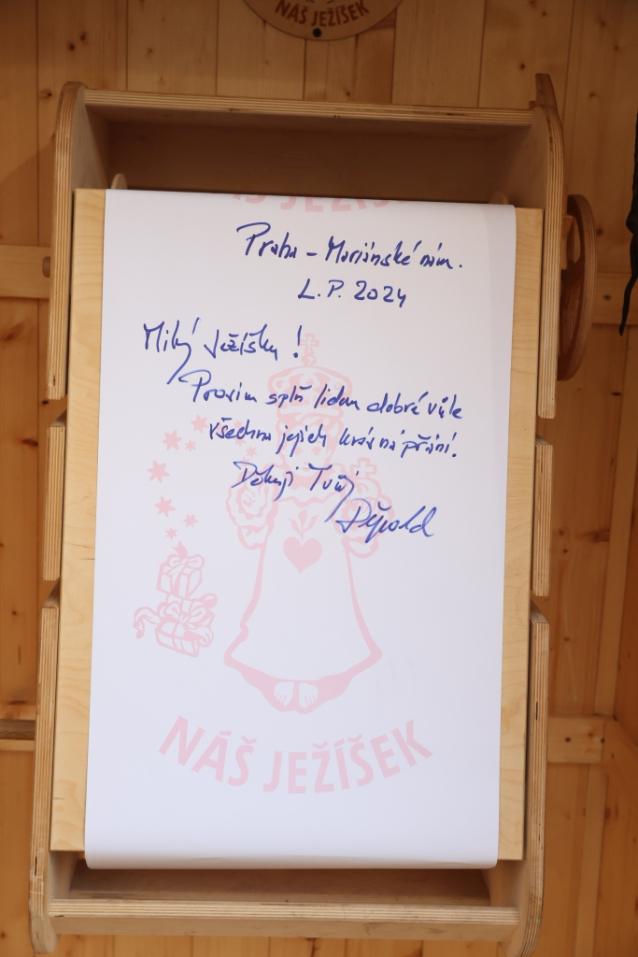 NÁŠ JEŽÍŠEK
ÁŠ JEŽÍŠ
Praha – Mariánské nám.
L.P. 2024
Milý Ježíšku!
Prosím splň lidem dobré vůle
všechna jejich krásná přání.
Děkuji Tvůj
Děpold
NÁŠ JEŽÍŠEK